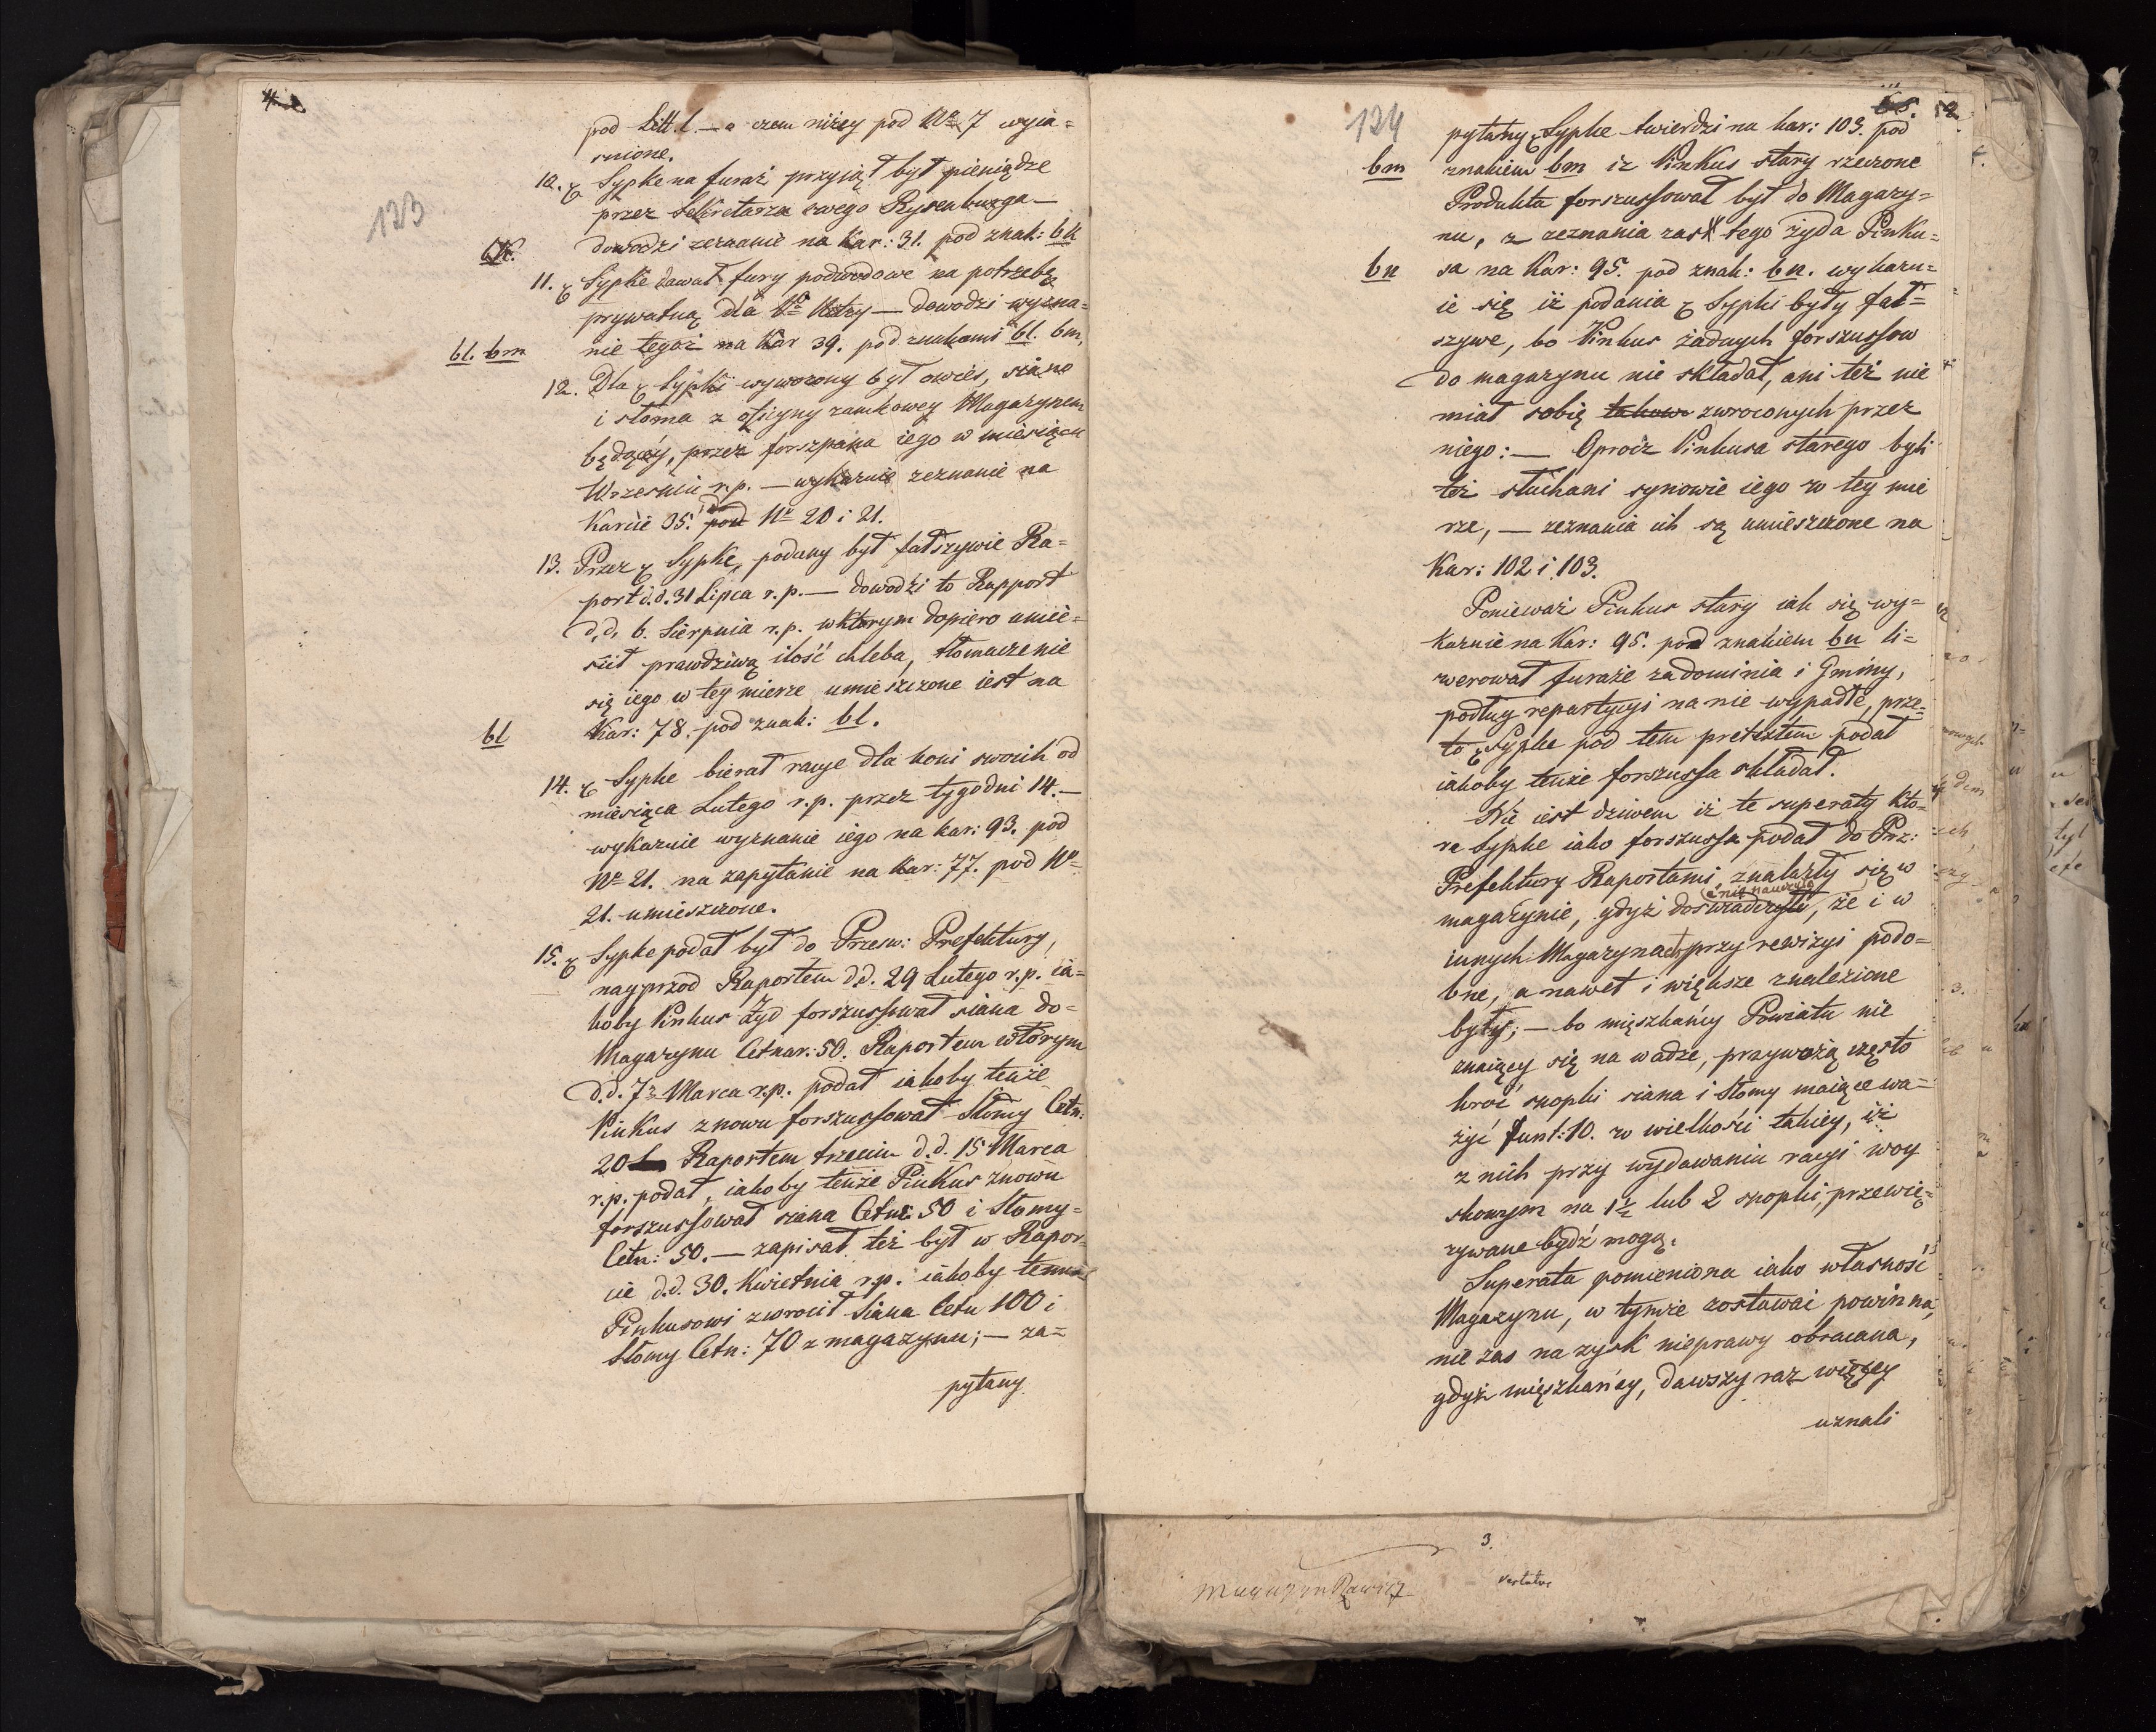 133
pod Litt. l. — o czem niżey pod Nr 7 wyia=
snione.
10. Sypke na furaż przyiął był pieniądze
przez Sekretarza swego Rysenburga —
bk. dowodzi zeznanie na Kar: 31. pod znak: bk
11. Sypke dawał fury podwodowe na potrzebę
prywatną dla — dowodzi wyzna=
bl. bm nie tegoż na Kar 39. pod znakami bl. bm,
12. Dla Sypki wywożony był owies, siano
i słoma z oficyny zamkowey Magazynem
będącey, przez forszpana iego w miesiącu
Wrześniu r. p. — wykazuie zeznanie na
Karcie 35. pod Nr 20 i 21.
13. Przez Sypkę podany był fałszywie Ra=
port d. d. 31 Lipca r. p. — dowodzi to Rapport
d. d. 6. Sierpnia r. p. w ktorym dopiero umie=
scił prawdziwą ilość chleba, tłomaczenie
się iego w tey mierze umieszczone iest na
bl Kar: 78. pod znak: bl.
14. Sypke bierał racye dla koni swoich od
miesiąca Lutego r. p. przez tygodni 14. —
wykazuie wyznanie iego na kar: 93. pod
Nr 21. na zapytanie na Kar: 77. pod Nr
21. umieszczone.
15. Sypke podał był do Przesw: Prefektury,
nayprzod Raportem dd. 29 Lutego r. p. ia=
koby Pinkus żyd forszussował siana do=
Magazynu Cetnar: 50. Raportem wtorym
d. d. 7 Marca r. p. podał iakoby tenże
Pinkus znowu forszussował Słomy Cetn:
20 Raportem trzecim d. d. 15 Marca
r. p. podał, iakoby tenże Pinkus znowu
forszussował siana Cetn: 50 i Słomy=
Cetn: 50. — zapisał też był w Rapor=
cie d. d. 30. Kwietnia r. p. iakoby temu
Pinkusowi zwrocił Siana Cetn 100 i
Słomy Cetn: 70 z magazynu; — za=
pytany
134
52
pytany Sypke twierdzi na kar: 103. pod
bm znakiem bm iż Pinkus stary rzeczone
Produkta forszussował był do Magazy=
nu, z zeznania zaś tego żyda Pinku=
bn sa na Kar: 95. pod znak: bn. wykazu=
ie się iż podania Sypki były fał=
szywe, bo Pinkus żadnych forszussow
do magazynu nie składał, ani też nie
miał sobie takow zwroconych przez
niego: — Oprocz Pinkusa starego byli
też słuchani synowie iego w tey mie
rze, — zeznania ich są umieszczone na
Kar: 102 i 103.
Ponieważ Pinkus stary iak się wy=
kazuie na Kar: 95. pod znakiem bn li=
werował furaże za dominia i Gminy,
podług repartycyi na nie wypadłe, prze=
to Sypke pod tem pretextem podał
iakoby tenże forszussa składał.
Nie iest dziwem iż te superaty kto=
re Sypke iako forszussa podał do Prz:
Prefektury Raportami, znalazły się w
magazynie, gdyż doswiadczyłi, że i w
innych Magazynach przy rewizyi podo=
bne, a nawet i większe znalezione
były; — bo mięszkańcy Powiatu nie
znaiący się na wadze, przywożą często
kroć snopki siana i słomy maiące wa=
żyć funt: 10. w wielkości takiey, iż
z nich przy wydawaniu racyi woy
skowym na 1½ lub 2 snopki, przewię=
zywane bydź mogą.
Superata pomieniona iako własność
Magazynu, w tymże zostawać powinna,
nie zas na zysk nieprawy obracana,
gdyż mięszkańcy, dawszy raz więcey
uznali
3.
Magazyn Rawicz